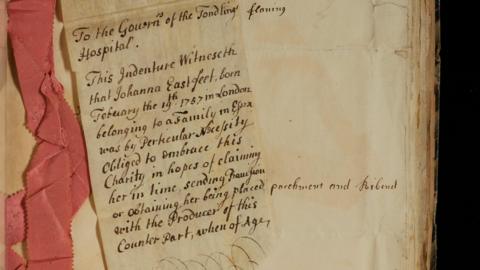 To the Governrs of the Fondling flaning
Hospital.
This Indenture Witnesseth
that Johanna Eastfeet, born
February the 19th 1757 in London
belonging to a Family in Essx
was by Perticular Necessity
Obliged to embrace this
Charity in hopes of claiming
her in time, sending
or obtaining her being placed parchment and Ribend
with the Producer of this
Counter Part, when of Age,